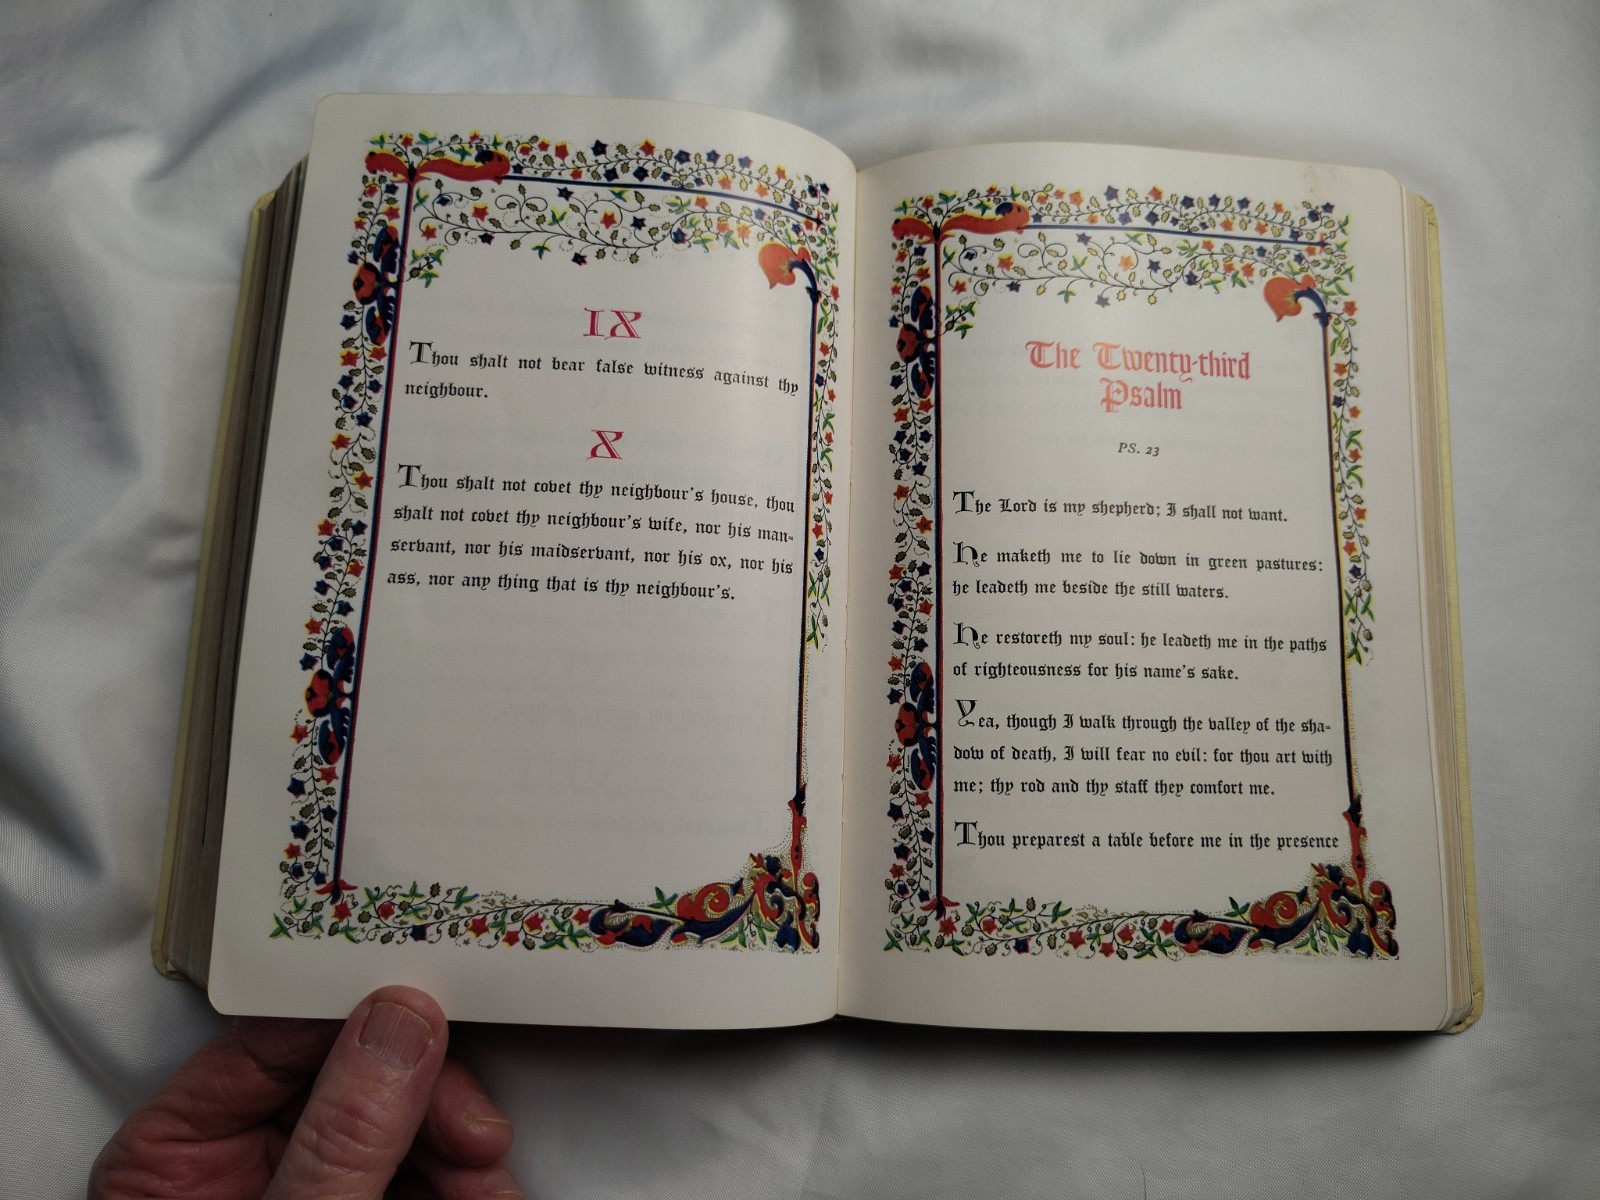 IX
Thou shalt not bear false witness against thy
neighbour.
X
Thou shalt not covet thy neighbour's house, thou
shalt not covet thy neighbour's wife, nor his man-
servant, nor his maidservant, nor his ox, nor his
ass, nor any thing that is thy neighbour's.
The Twenty-third
Psalm
PS. 23
The Lord is my shepherd; I shall not want.
He maketh me to lie down in green pastures:
he leadeth me beside the still waters.
He restoreth my soul: he leadeth me in the paths
of righteousness for his name's sake.
Yea, though I walk through the valley of the sha-
dow of death, I will fear no evil: for thou art with
me; thy rod and thy staff they comfort me.
Thou preparest a table before me in the presence